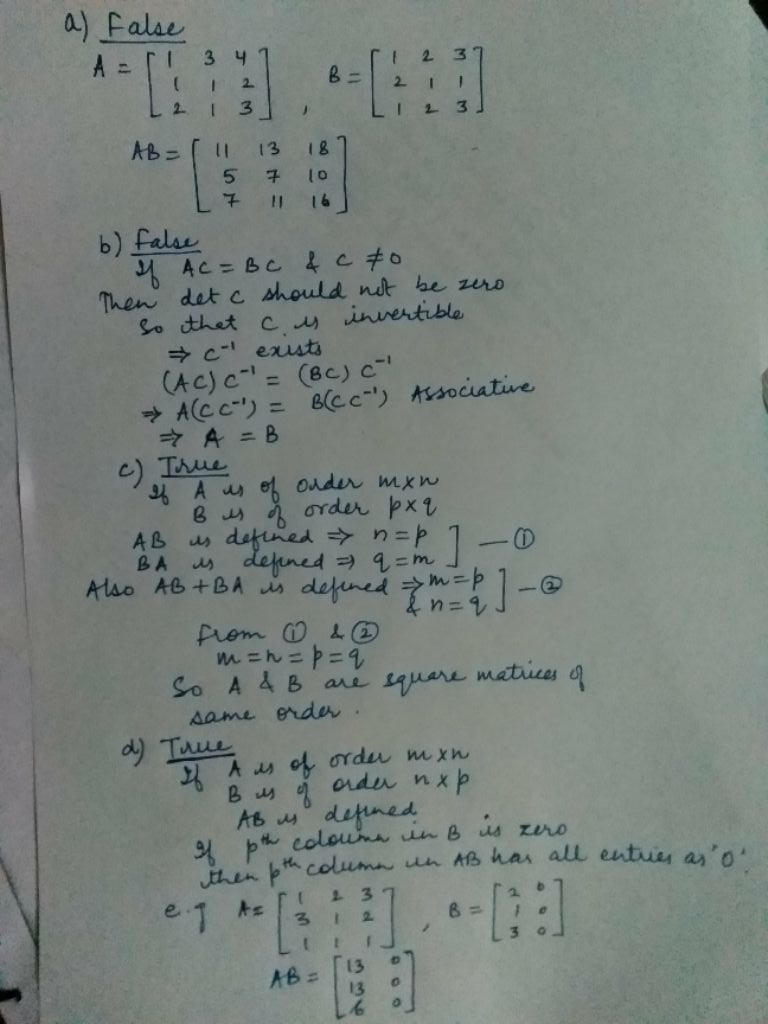 a) False
A = [ 1 3 4
1 1 2
2 1 3 ] , B = [ 1 2 3
2 1 1
1 2 3 ]
AB = [ 11 13 18
5 7 10
7 11 16 ]
b) False
If AC = BC & C ≠ 0
Then det C should not be zero
So that C is invertible
⇒ C⁻¹ exists
(AC) C⁻¹ = (BC) C⁻¹
⇒ A(C C⁻¹) = B(C C⁻¹) Associative
⇒ A = B
c) True
If A is of order m×n
B is of order p×q
AB is defined ⇒ n = p
BA is defined ⇒ q = m ] — ①
Also AB + BA is defined ⇒ m = p
& n = q ] — ②
from ① & ②
m = n = p = q
So A & B are square matrices of
same order.
d) True
If A is of order m×n
B is of order n×p
AB is defined
If pth coloumn in B is zero
then pth column in AB has all entries as '0'.
e.g A = [ 1 2 3
3 1 2
1 1 1 ] , B = [ 2 0
1 0
3 0 ]
AB = [ 13 0
13 0
6 0 ]